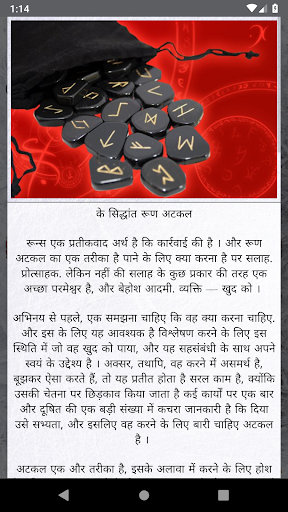 1:14
के सिद्धांत रूण अटकल
रून्स एक प्रतीकवाद अर्थ है कि कार्रवाई की है । और रूण
अटकल का एक तरीका है पाने के लिए क्या करना है पर सलाह.
प्रोत्साहक. लेकिन नहीं की सलाह के कुछ प्रकार की तरह एक
अच्छा परमेश्वर है, और बेहोश आदमी. व्यक्ति — खुद को ।
अभिनय से पहले, एक समझना चाहिए कि वह क्या करना चाहिए.
और इस के लिए यह आवश्यक है विश्लेषण करने के लिए इस
स्थिति में जो वह खुद को पाया, और यह सहसंबंधी के साथ अपने
स्वयं के उद्देश्य है । अक्सर, तथापि, वह करने में असमर्थ है,
बूझकर ऐसा करते हैं, तो यह प्रतीत होता है सरल काम है, क्योंकि
उसकी चेतना पर छिड़काव किया जाता है कई कार्यों पर एक बार
और दूषित की एक बड़ी संख्या में कचरा जानकारी है कि दिया
उसे सभ्यता, और इसलिए वह करने के लिए बारी चाहिए अटकल
है ।
अटकल एक और तरीका है, इसके अलावा में करने के लिए होश